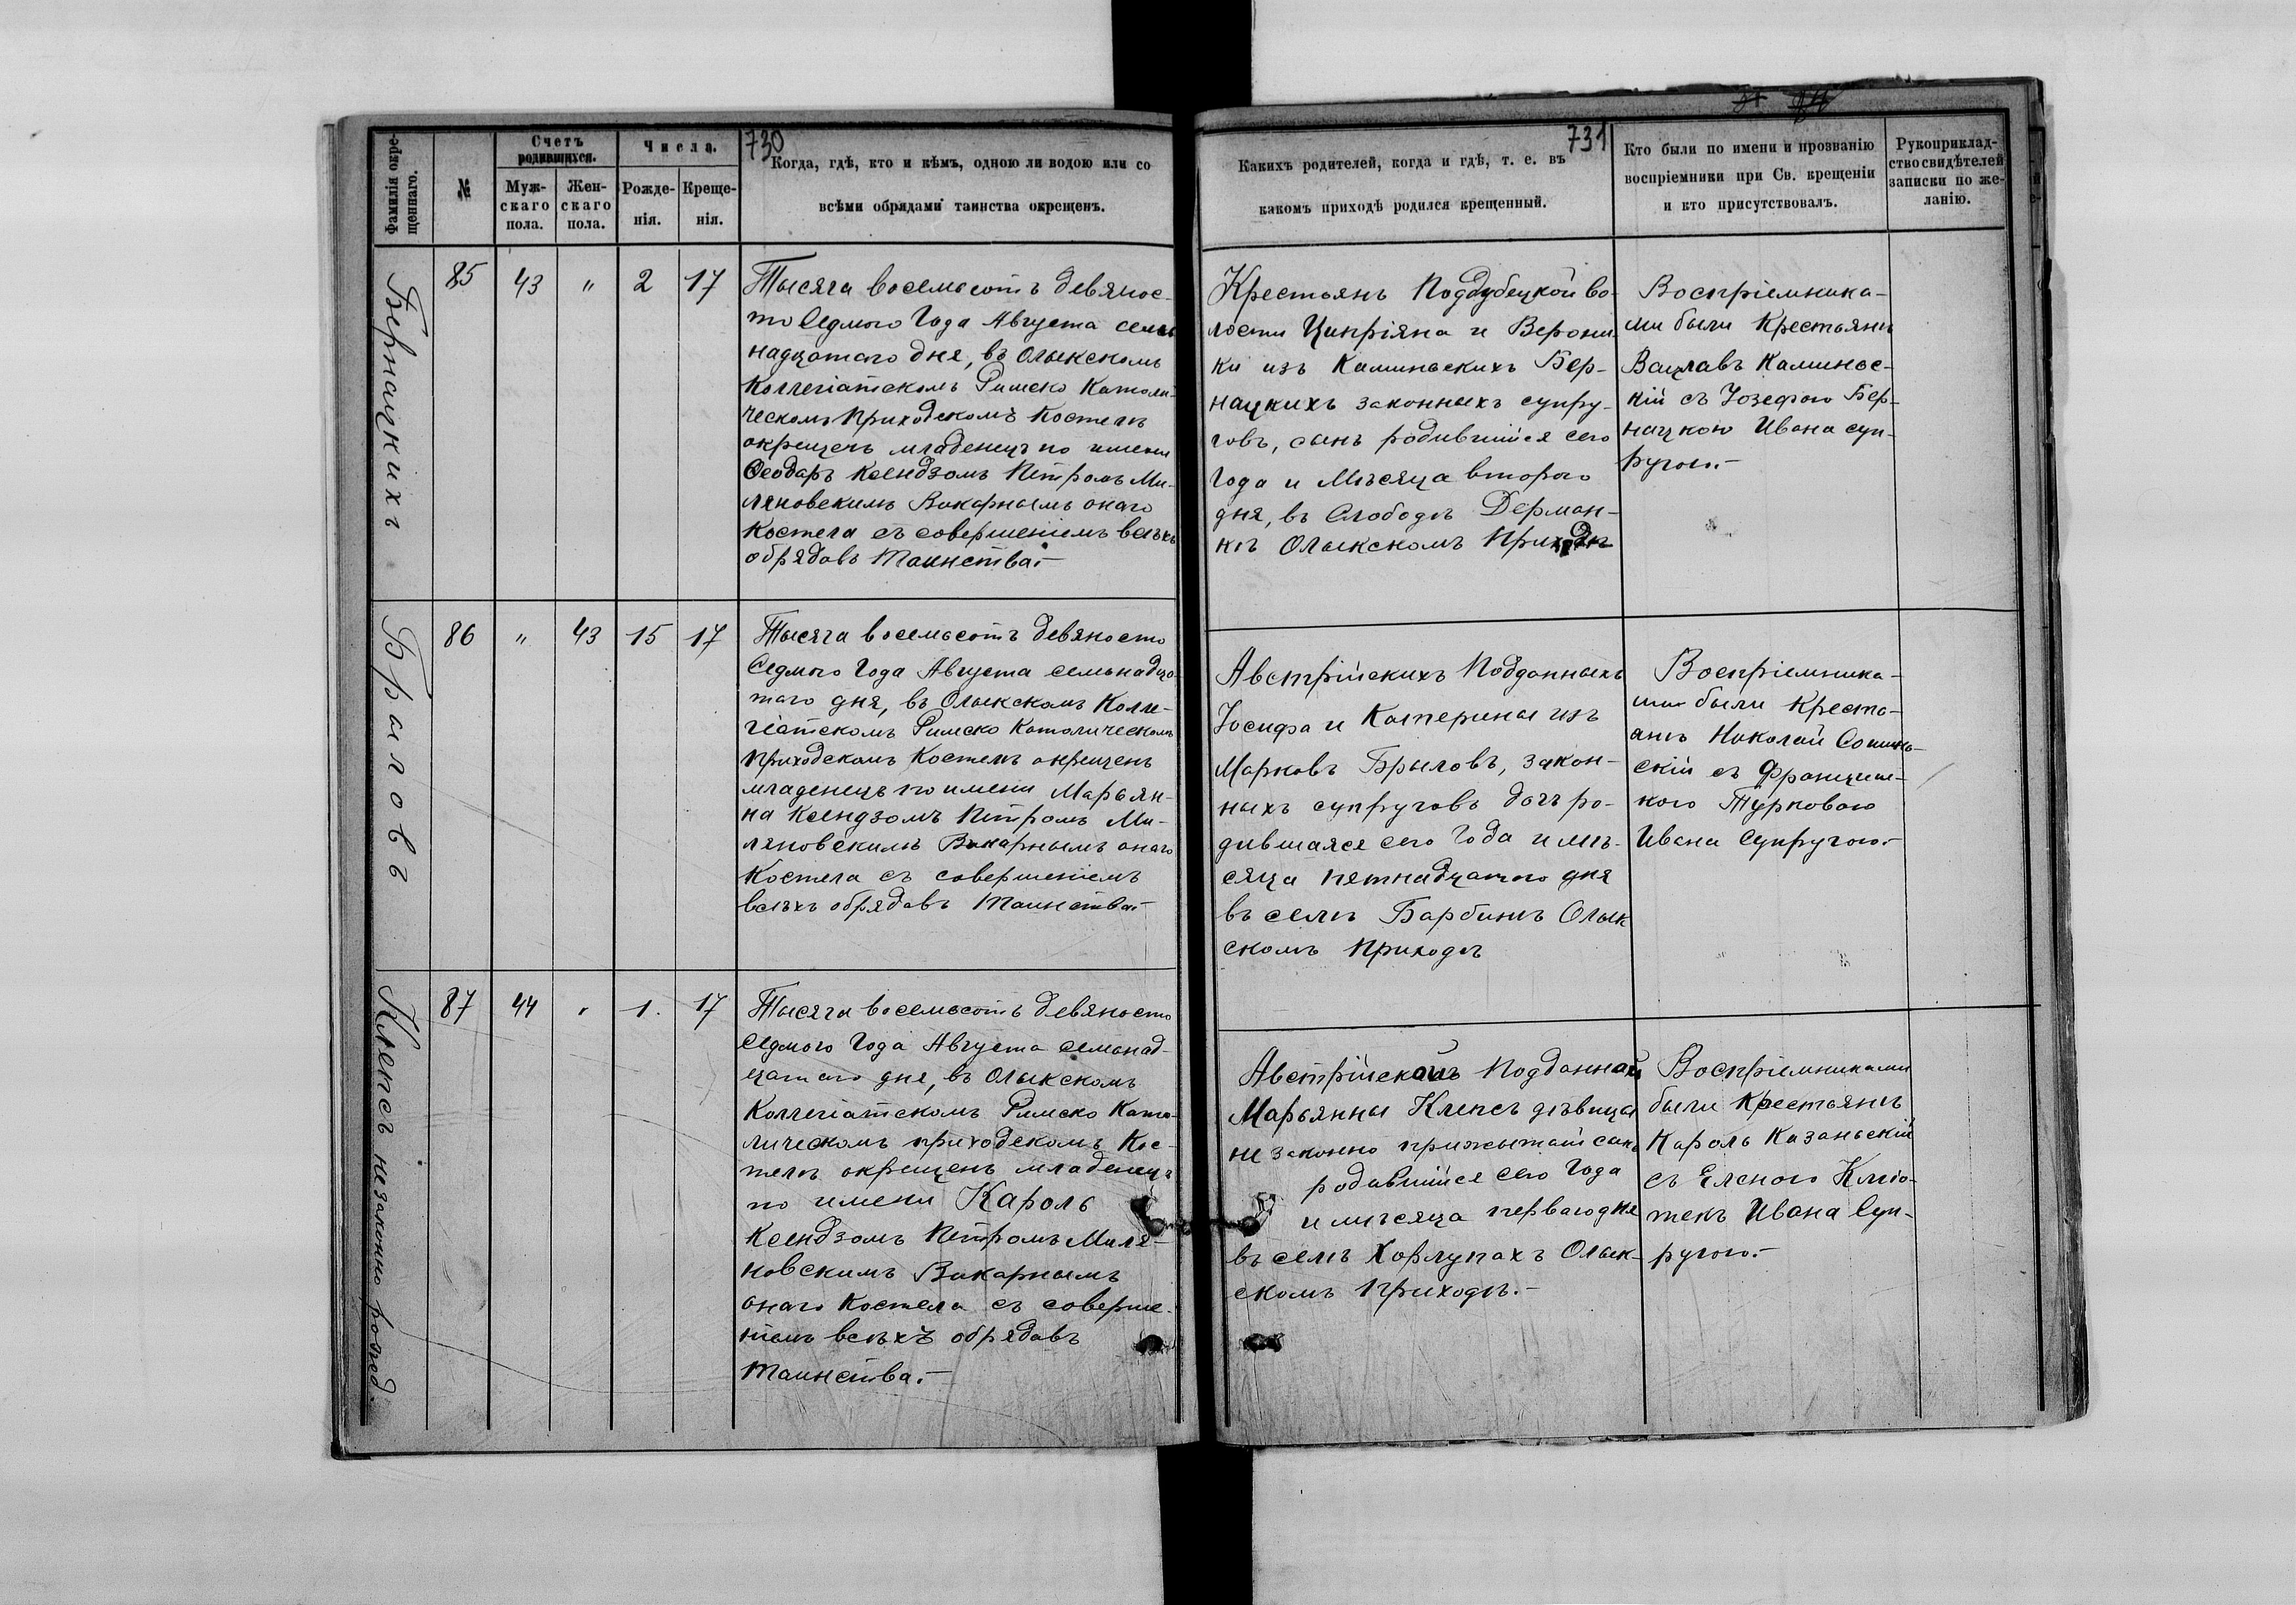 730
731
Фамилія окре-
щеннаго.
№
Счетъ
родившихся.
Муж-
скаго
пола.
Жен-
скаго
пола.
Числа.
Рожде-
нія.
Креще-
нія.
Когда, гдѣ, кто и кѣмъ, одною ли водою или со
всѣми обрядами таинства окрещенъ.
Какихъ родителей, когда и гдѣ, т. е. въ
какомъ приходѣ родился крещенный.
Кто были по имени и прозванію
воспріемники при Св. крещеніи
и кто присутствовалъ.
Рукоприклад-
ство свидѣтелей
записки по же-
ланію.
Бернацкихъ
85
43
"
2
17
Тысяча восемьсотъ девянос-
то Седмого Года Августа семь
надцатаго дня, въ Олыкскомъ
Коллегіатскомъ Римско Католи-
ческомъ Приходскомъ Костелѣ
окрещенъ младенецъ по имени
Ѳеодаръ Ксендзомъ Петромъ Ми-
ляновскимъ Викарнымъ онаго
Костела съ совершеніемъ всѣхъ
обрядовъ Таинства.-
Крестьянъ Поддубецкой во-
лости Ципріяна и Верони-
ки изъ Каминьскихъ Бер-
нацкихъ законныхъ супру-
говъ, сынъ родившійся сего
Года и Мѣсяца второго
дня, въ Слободѣ Дерман-
кѣ Олыкскомъ Приходѣ
Воспріемника-
ми были Крестьянъ
Вацлавъ Каминьс-
кій съ Іозефою Бер-
нацкою Ивана суп-
ругою.-
Брыловъ
86
"
43
15
17
Тысяча восемьсотъ девяносто
Седмого Года Августа семьнадца-
таго дня, въ Олыкскомъ Колле-
гіатскомъ Римско Католическомъ
Приходскомъ Костелѣ окрещенъ
младенецъ по имени Марьян-
на Ксендзомъ Петромъ Ми-
ляновскимъ Викарнымъ онаго
Костела съ совершеніемъ
всѣхъ обрядовъ Таинства.-
Австрійскихъ Подданныхъ
Іосифа и Катерины изъ
Марковъ Брыловъ, закон-
ныхъ супруговъ дочь ро-
дившаяся сего Года и мѣ-
сяца пятнадцатого дня
въ селѣ Барбинѣ Олык
скомъ Приходѣ
Воспріемника-
ми были Кресть-
янъ Николай
скій съ Францишь-
кою Турковою
Ивана Супругою.-
Клепсъ незаконно рожд.
87
44
"
1.
17
Тысяча восемьсотъ девяносто
Седмого Года Августа семьнад-
цатаго дня, въ Олыкскомъ
Коллегіатскомъ Римско Като-
лическомъ приходскомъ Кос-
телѣ окрещенъ младенецъ
по имени Кароль
Ксендзомъ Петромъ Миля-
новскимъ Викарнымъ
онаго Костела съ соверше-
ніемъ всѣхъ обрядовъ
Таинства.-
Австрійской Подданной
Марьянны Клепсъ дѣвицы
незаконно прижытый сынъ
родившійся сего Года
и мѣсяца перваго дня
въ селѣ Хорлупахъ Олык-
скомъ приходѣ.-
Воспріемниками
были Крестьянъ
Кароль Казаньскій
съ Еленою Кміо-
текъ Ивана Суп-
ругою.-